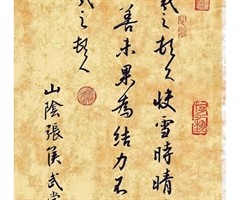 羲之頓首快雪時晴
善未果為結力不
羲之頓首
山陰張侯武